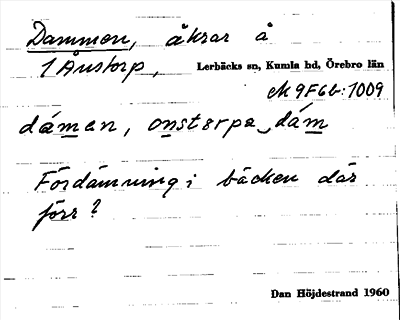 Dammen, åkrar å
1 Ånstorp, Lerbäcks sn, Kumla hd, Örebro län
ek 9F6b:1009
dámen, onstɵrpa dám
Fördämning i bäcken där
förr?
Dan Höjdestrand 1960